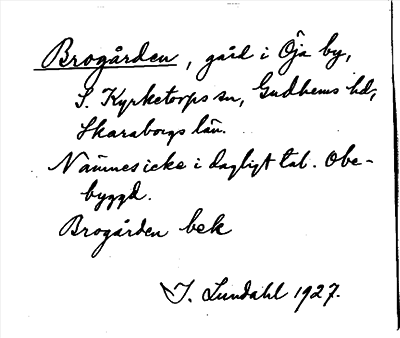 Brogården, gård i Öja by,
S. Kyrketorps sn, Gudhems hd,
Skaraborgs län.
Nämnes icke i dagligt tal. Obe-
byggd.
Brogården bek
I. Lundahl 1927.